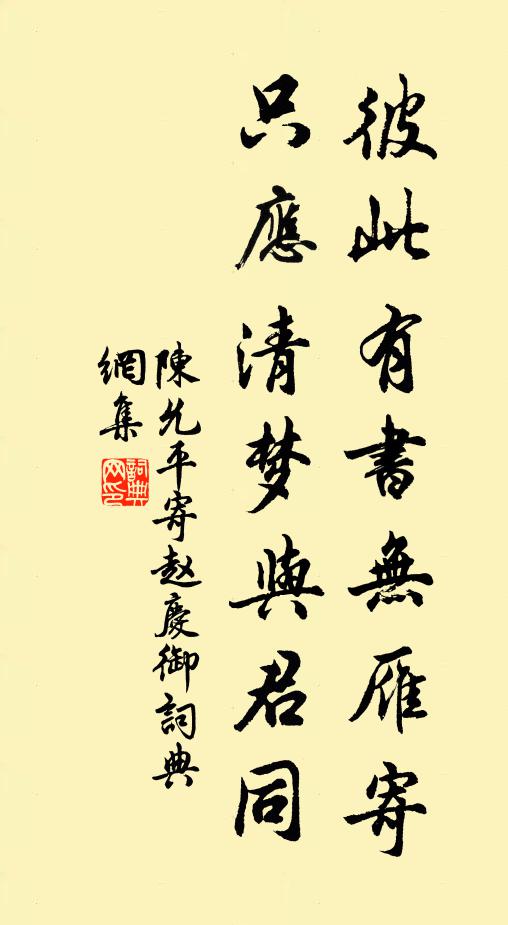 彼此有書無雁寄
只應清梦與君同
陳允平寄赵慶御詞典
網集
詞典
网印